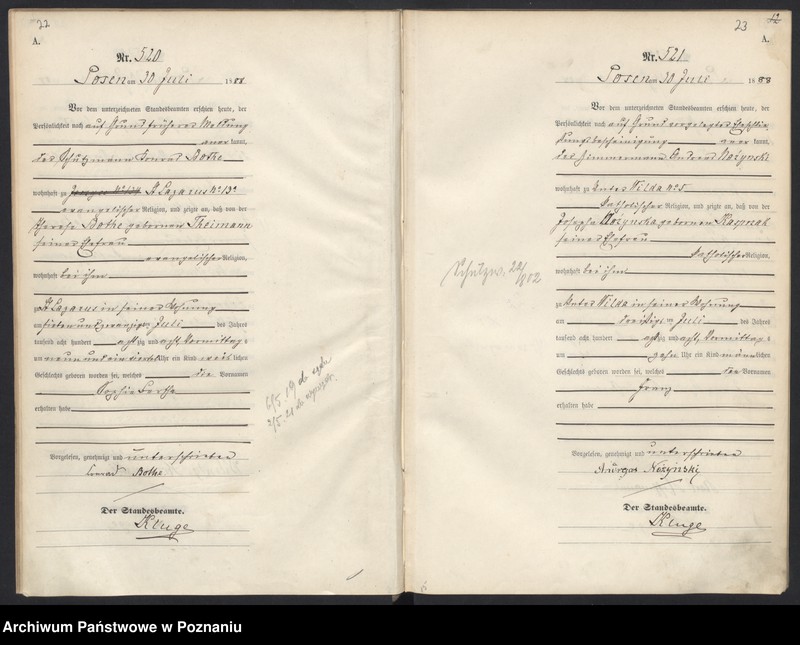 22
A.
Nr. 520
Posen am 30 Juli 1888
Vor dem unterzeichneten Standesbeamten erschien heute, der
Persönlichkeit nach auf Grund früherer Meldung
anerkannt,
der Schutzmann Konrad Bothe
wohnhaft zu St Lazarus No 13a
evangelischer Religion, und zeigte an, daß von der
Therese Bothe geborenen Theimann
seiner Ehefrau
evangelischer Religion,
wohnhaft bei ihm
zu St Lazarus in seiner Wohnung
am sieben und zwanzigsten Juli des Jahres
tausend acht hundert achtzig und acht, Vormittags
um neun und ein viertel Uhr ein Kind weiblichen
Geschlechts geboren worden sei, welches die Vornamen
Sophie Bertha
erhalten habe
Vorgelesen, genehmigt und unterschrieben
Conrad Bothe
Der Standesbeamte.
Kluge
6/5. 19
2/5. 21
23
A.
Nr. 521
Posen am 30 Juli 1888
Vor dem unterzeichneten Standesbeamten erschien heute, der
Persönlichkeit nach auf Grund vorgelegter Eheschlie-
ßungsbescheinigung anerkannt,
der Zimmermann Andreas Nożynski
wohnhaft zu Unter Wilda No 5
katholischer Religion, und zeigte an, daß von der
Josepha Nożynska geborenen Kasprzak
seiner Ehefrau
katholischer Religion,
wohnhaft bei ihm
zu Unter Wilda in seiner Wohnung
am dreißigsten Juli des Jahres
tausend acht hundert achtzig und acht, Vormittags
um zehn Uhr ein Kind männlichen
Geschlechts geboren worden sei, welches die Vornamen
Franz
erhalten habe
Vorgelesen, genehmigt und unterschrieben
Nożyński
Der Standesbeamte.
Kluge
Archiwum Państwowe w Poznaniu